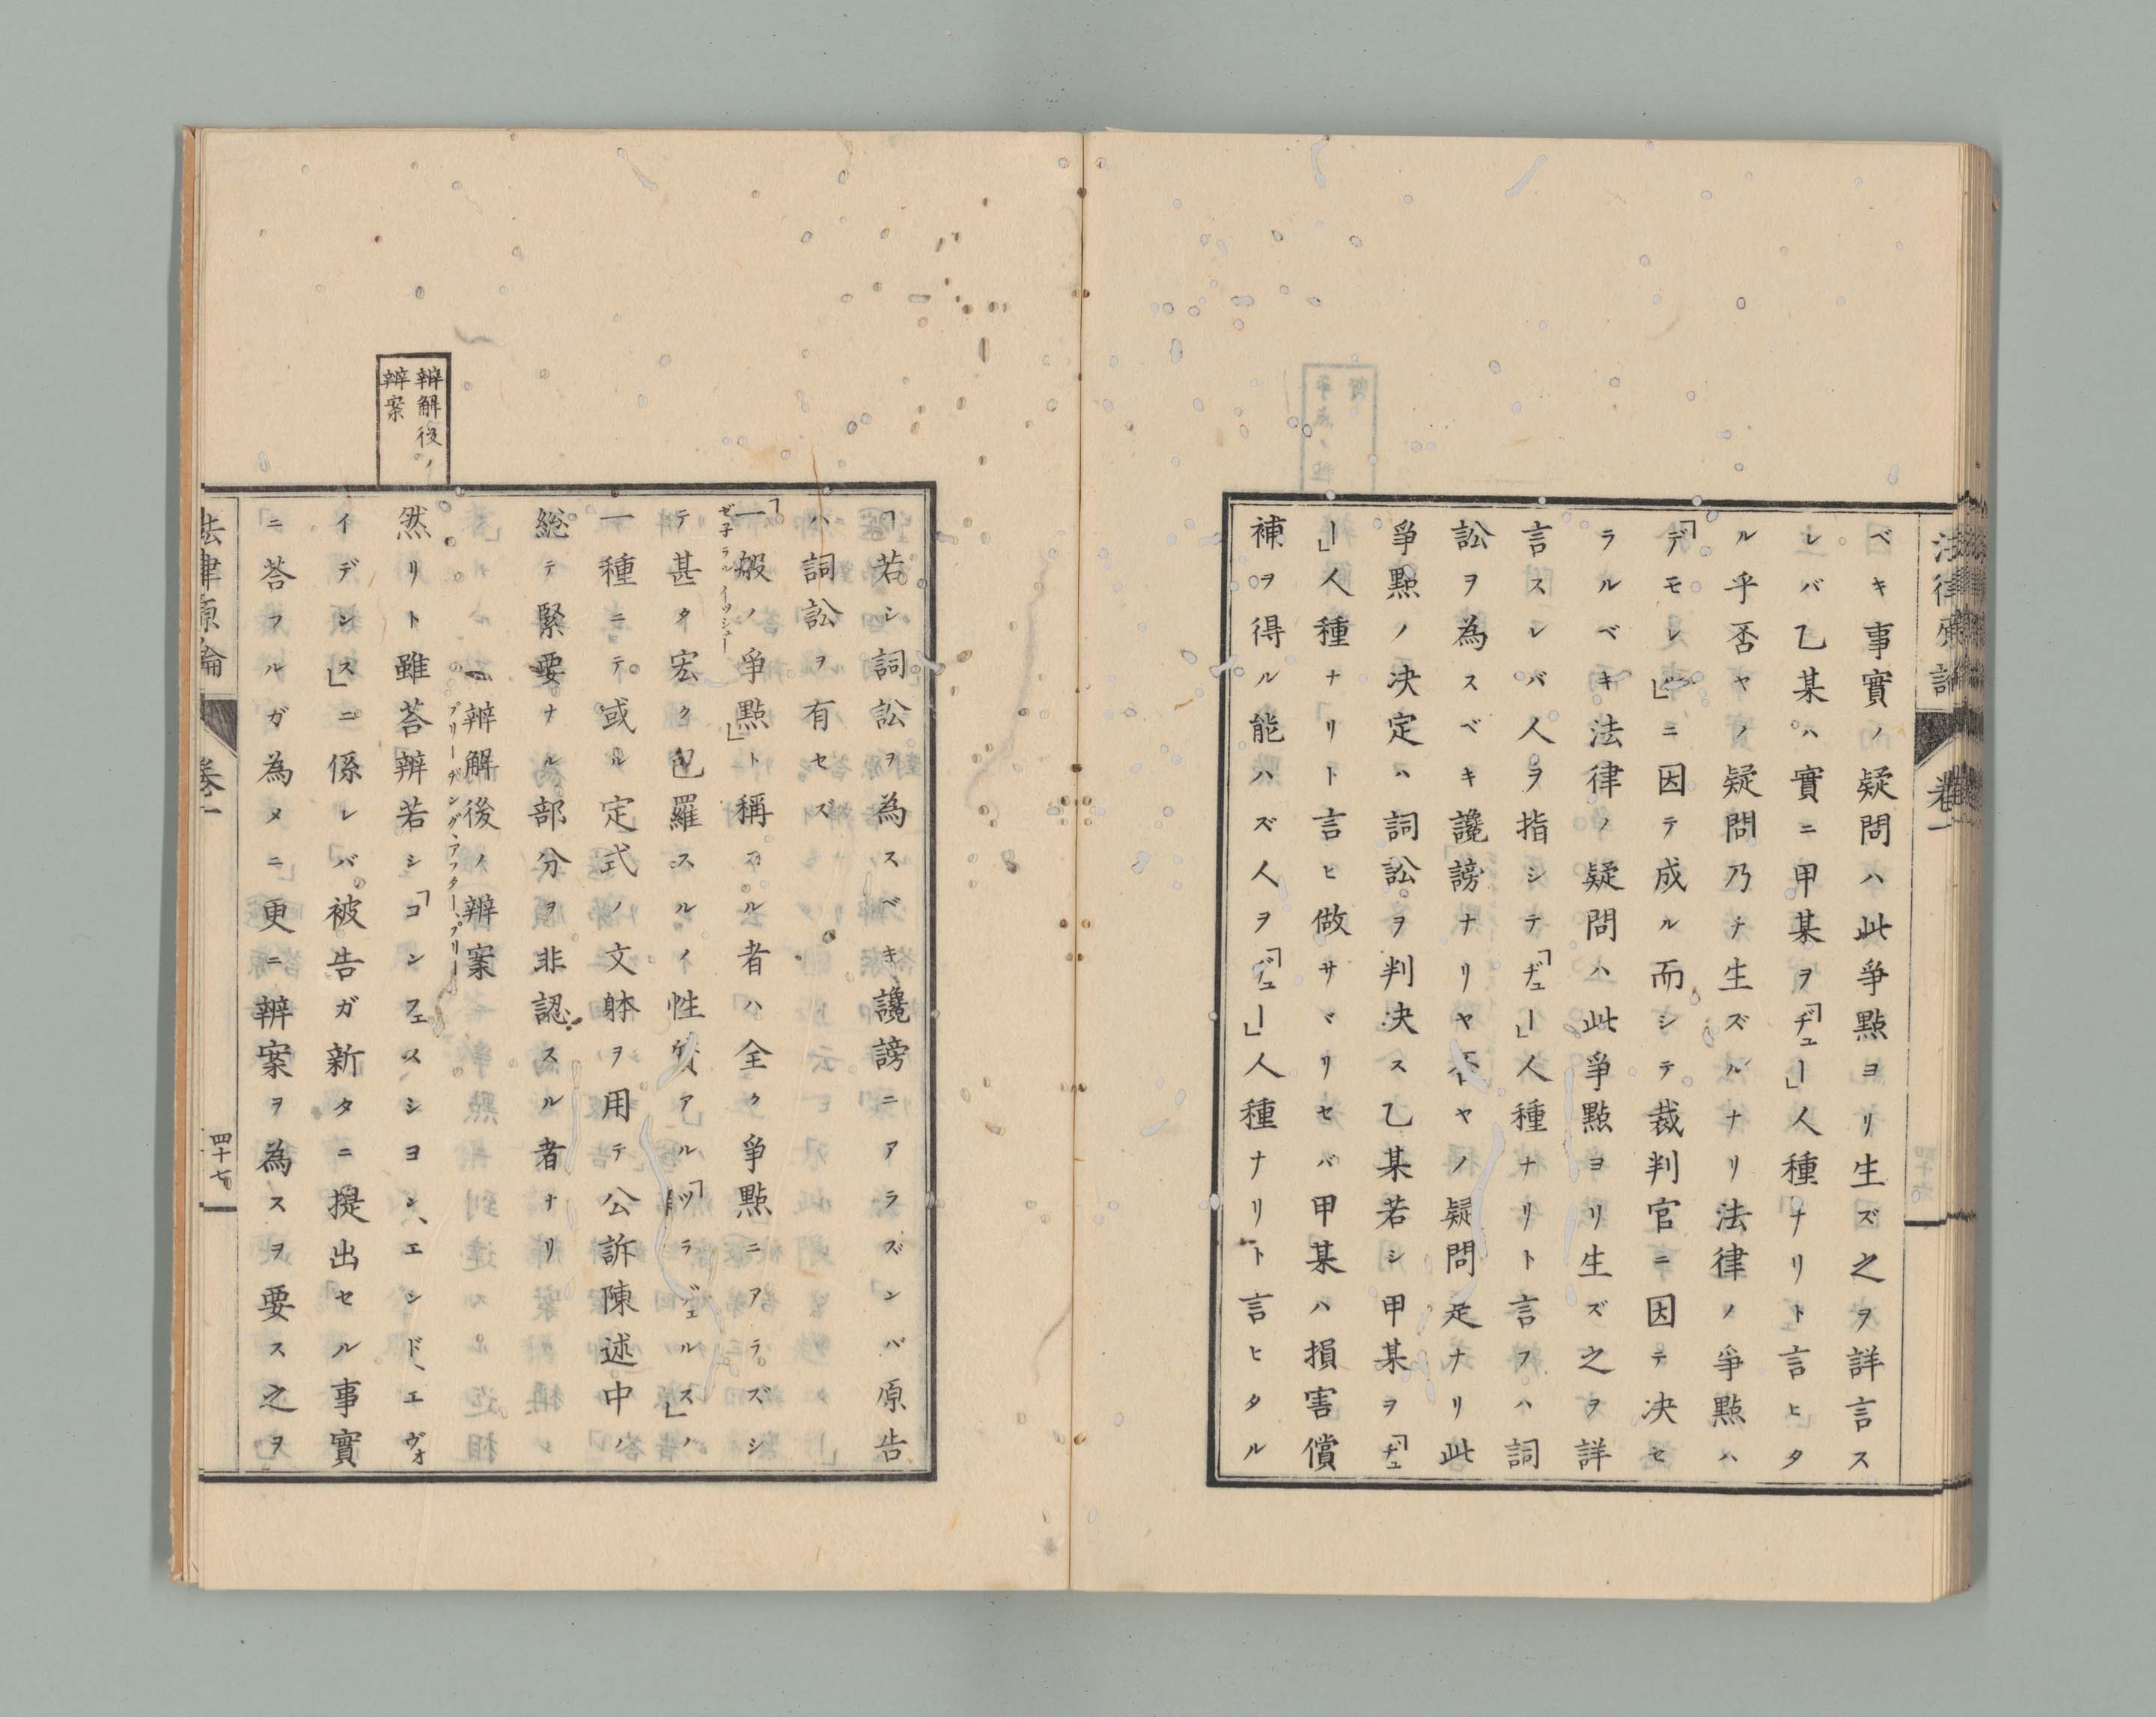 法律原論
卷一
ベキ事實ノ疑問ハ此爭點ヨリ生ズ之ヲ詳言ス
レバ乙某ハ實ニ甲某ヲ「ヂュー」人種ナリト言ヒタ
ル乎否ヤノ疑問乃チ生ズルナリ法律ノ爭點ハ
「デモレル」ニ因テ成ル而シテ裁判官ニ因テ决セ
ラルベキ法律ノ疑問ハ此爭點ヨリ生ズ之ヲ詳
言スレバ人ヲ指シテ「ヂュー」人種ナリト言フハ詞
訟ヲ為スベキ讒謗ナリヤ否ヤノ疑問是ナリ此
爭點ノ决定ハ詞訟ヲ判决ス乙某若シ甲某ヲ「ヂュ
ー」人種ナリト言ヒ做サヾリセバ甲某ハ損害償
補ヲ得ル能ハズ人ヲ「ヂュー」人種ナリト言ヒタル
「若シ詞訟ヲ為スベキ讒謗ニアラズンバ原告
ハ詞訟ヲ有セズ
「一般ノ爭點」ト稱スル者ハ全ク爭點ニアラズシ
ゼ子ラル イッシュー
テ甚タ宏ク包羅スルノ性質アル「ツラヴェルス」ノ
一種ニテ或ル定式ノ文躰ヲ用テ公訴陳述中ノ
総テ緊要ナル部分ヲ非認スル者ナリ
辨解後ノ辨案
プリーヂング、アフター、プリー
辨解後ノ
辨案
然リト雖荅辨若シ「コンフェスシヨン、エンド、エヴォ
イデンス」ニ係レバ被告ガ新タニ提出セル事實
ニ荅フルガ為メニ更ニ辨案ヲ為スヲ要ス之ヲ
法律原論
卷一
四十七